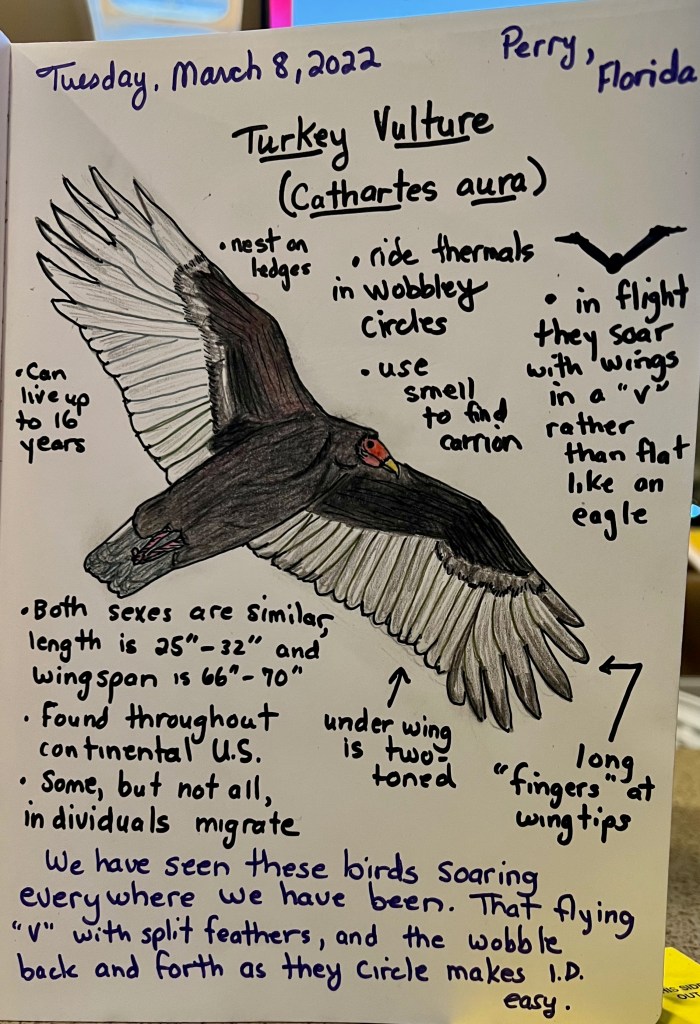 Tuesday, March 8, 2022
Perry,
Florida
Turkey Vulture
(Cathartes aura)
• nest on
ledges
• ride thermals
in wobbley
circles
• use
smell
to find
carrion
• in flight
they soar
with wings
in a "V"
rather
than flat
like an
eagle
• Can
live up
to 16
years
• Both sexes are similar,
length is 25"-32" and
wingspan is 66"-70"
• Found throughout
continental U.S.
• Some, but not all,
individuals migrate
under wing
is two-
toned
long
"fingers" at
wingtips
We have seen these birds soaring
everywhere we have been. That flying
"V" with split feathers, and the wobble
back and forth as they circle makes I.D.
easy.
OUT